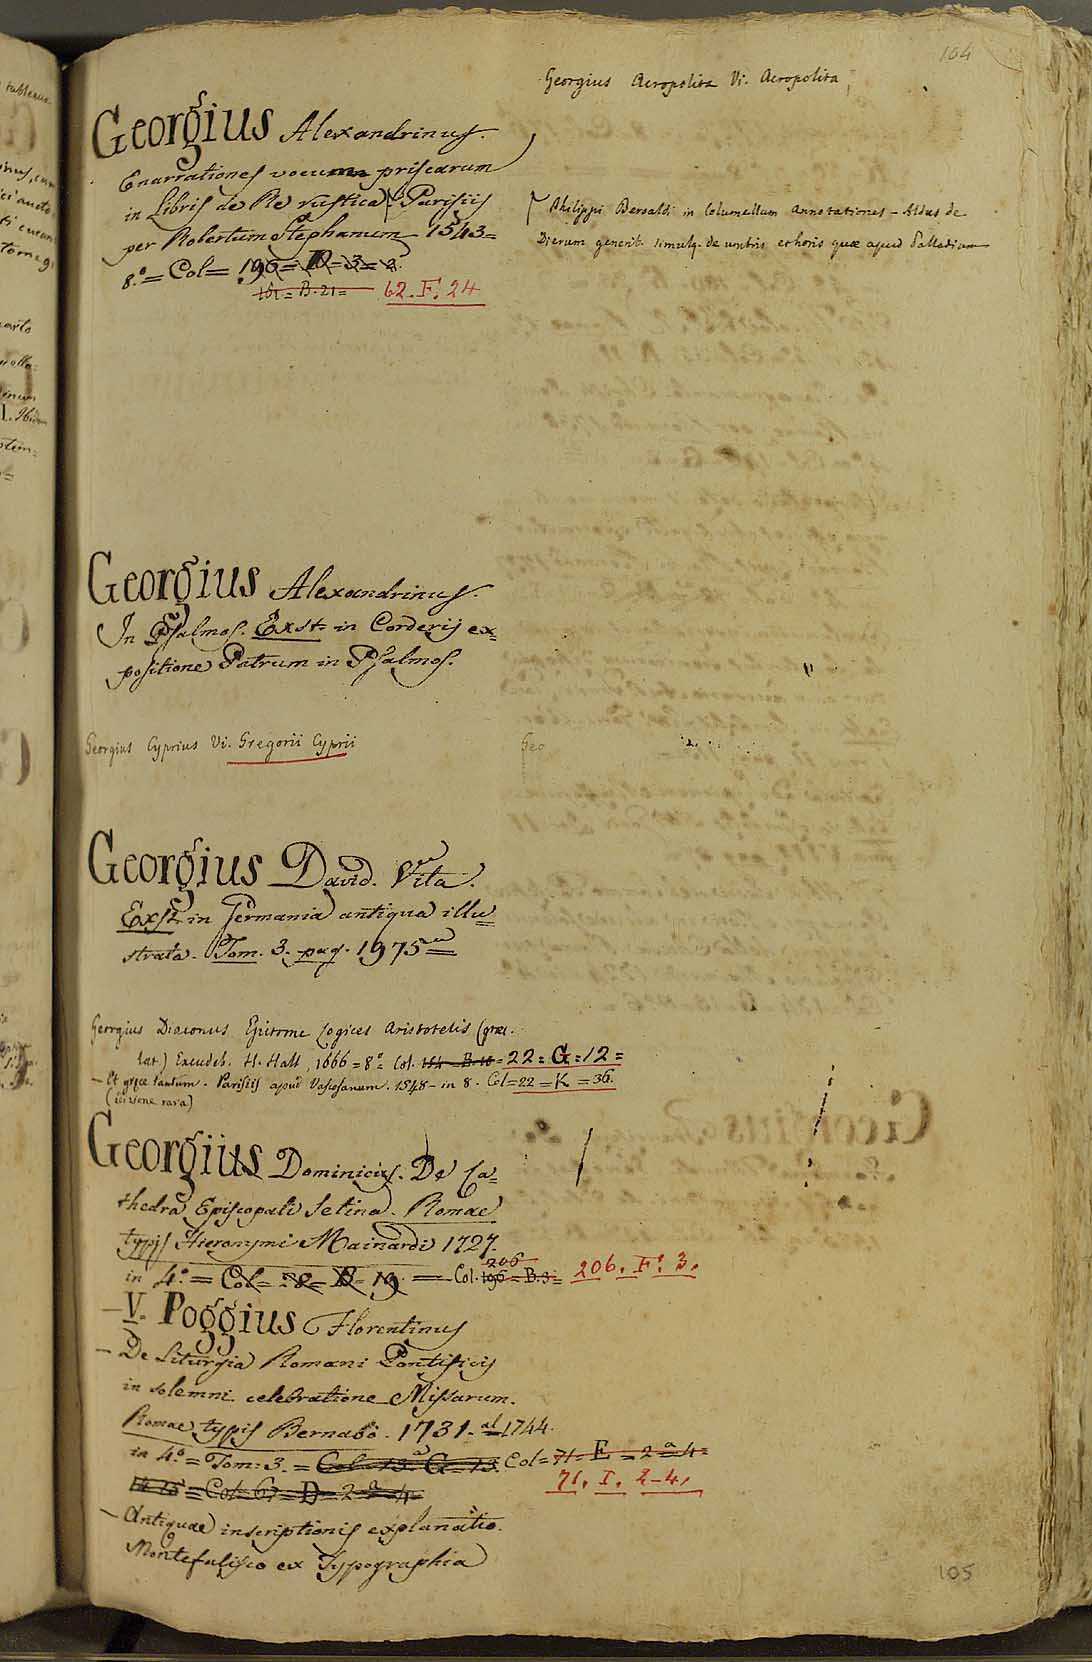 104
Georgius Acropolita Vi. Acropolita
Georgius Alexandrinus.
Enarrationes vocum priscarum
in Libris de Re rustica Parisiis
per Robertum Stephanum 1543=
8.º = Col= 196= D= 3= 2.
181 = B. 21= 62. F. 24
Philippi Beroaldi in Columellam Annotationes - Aldus de
Dierum generib. simulq. de umbris et horis quae apud Palladium
Georgius Alexandrinus.
In Psalmos. Exst. in Corderij ex=
positione Patrum in Psalmos.
Georgius Cyprius Vi. Gregorii Cyprii
Geo
Georgius David. Vita.
Exst. in Germania antiqua illu=
strata. Tom. 3. pag. 1975
Georgius Diaconus Epitome Logices Aristotelis (græc.
lat.) Excudeb. H. Hall, 1666 = 8º = Col. 154 B. 10 = 22 = G = 12 =
— Et græce tantum. Parisiis apud Vascosanum. 1548 - in 8. Col = 22 = K = 36.
(edizione rara)
Georgiius Dominicus. De Ca=
thedra Episcopali Setina. Romae
typis Hieronymi Mainardi 1727.
in 4.º = Col= 78= B= 19. — Col. 196 = B. 3 = 206 206. F. 3.
— V. Poggius Florentinus
— De Liturgia Romani Pontificis
in solemni celebratione Missarum.
Romae typis Bernabò. 1731. al 1744.
in 4.º = Tom: 3. = Col. 13. G = 13. Col = 71 = E = 2 a 4 =
71. I. 2-4.
= Col: 67 = D = 2 a 4
— Antiquae inscriptionis explanatio.
Montefalisco ex Typographia
105